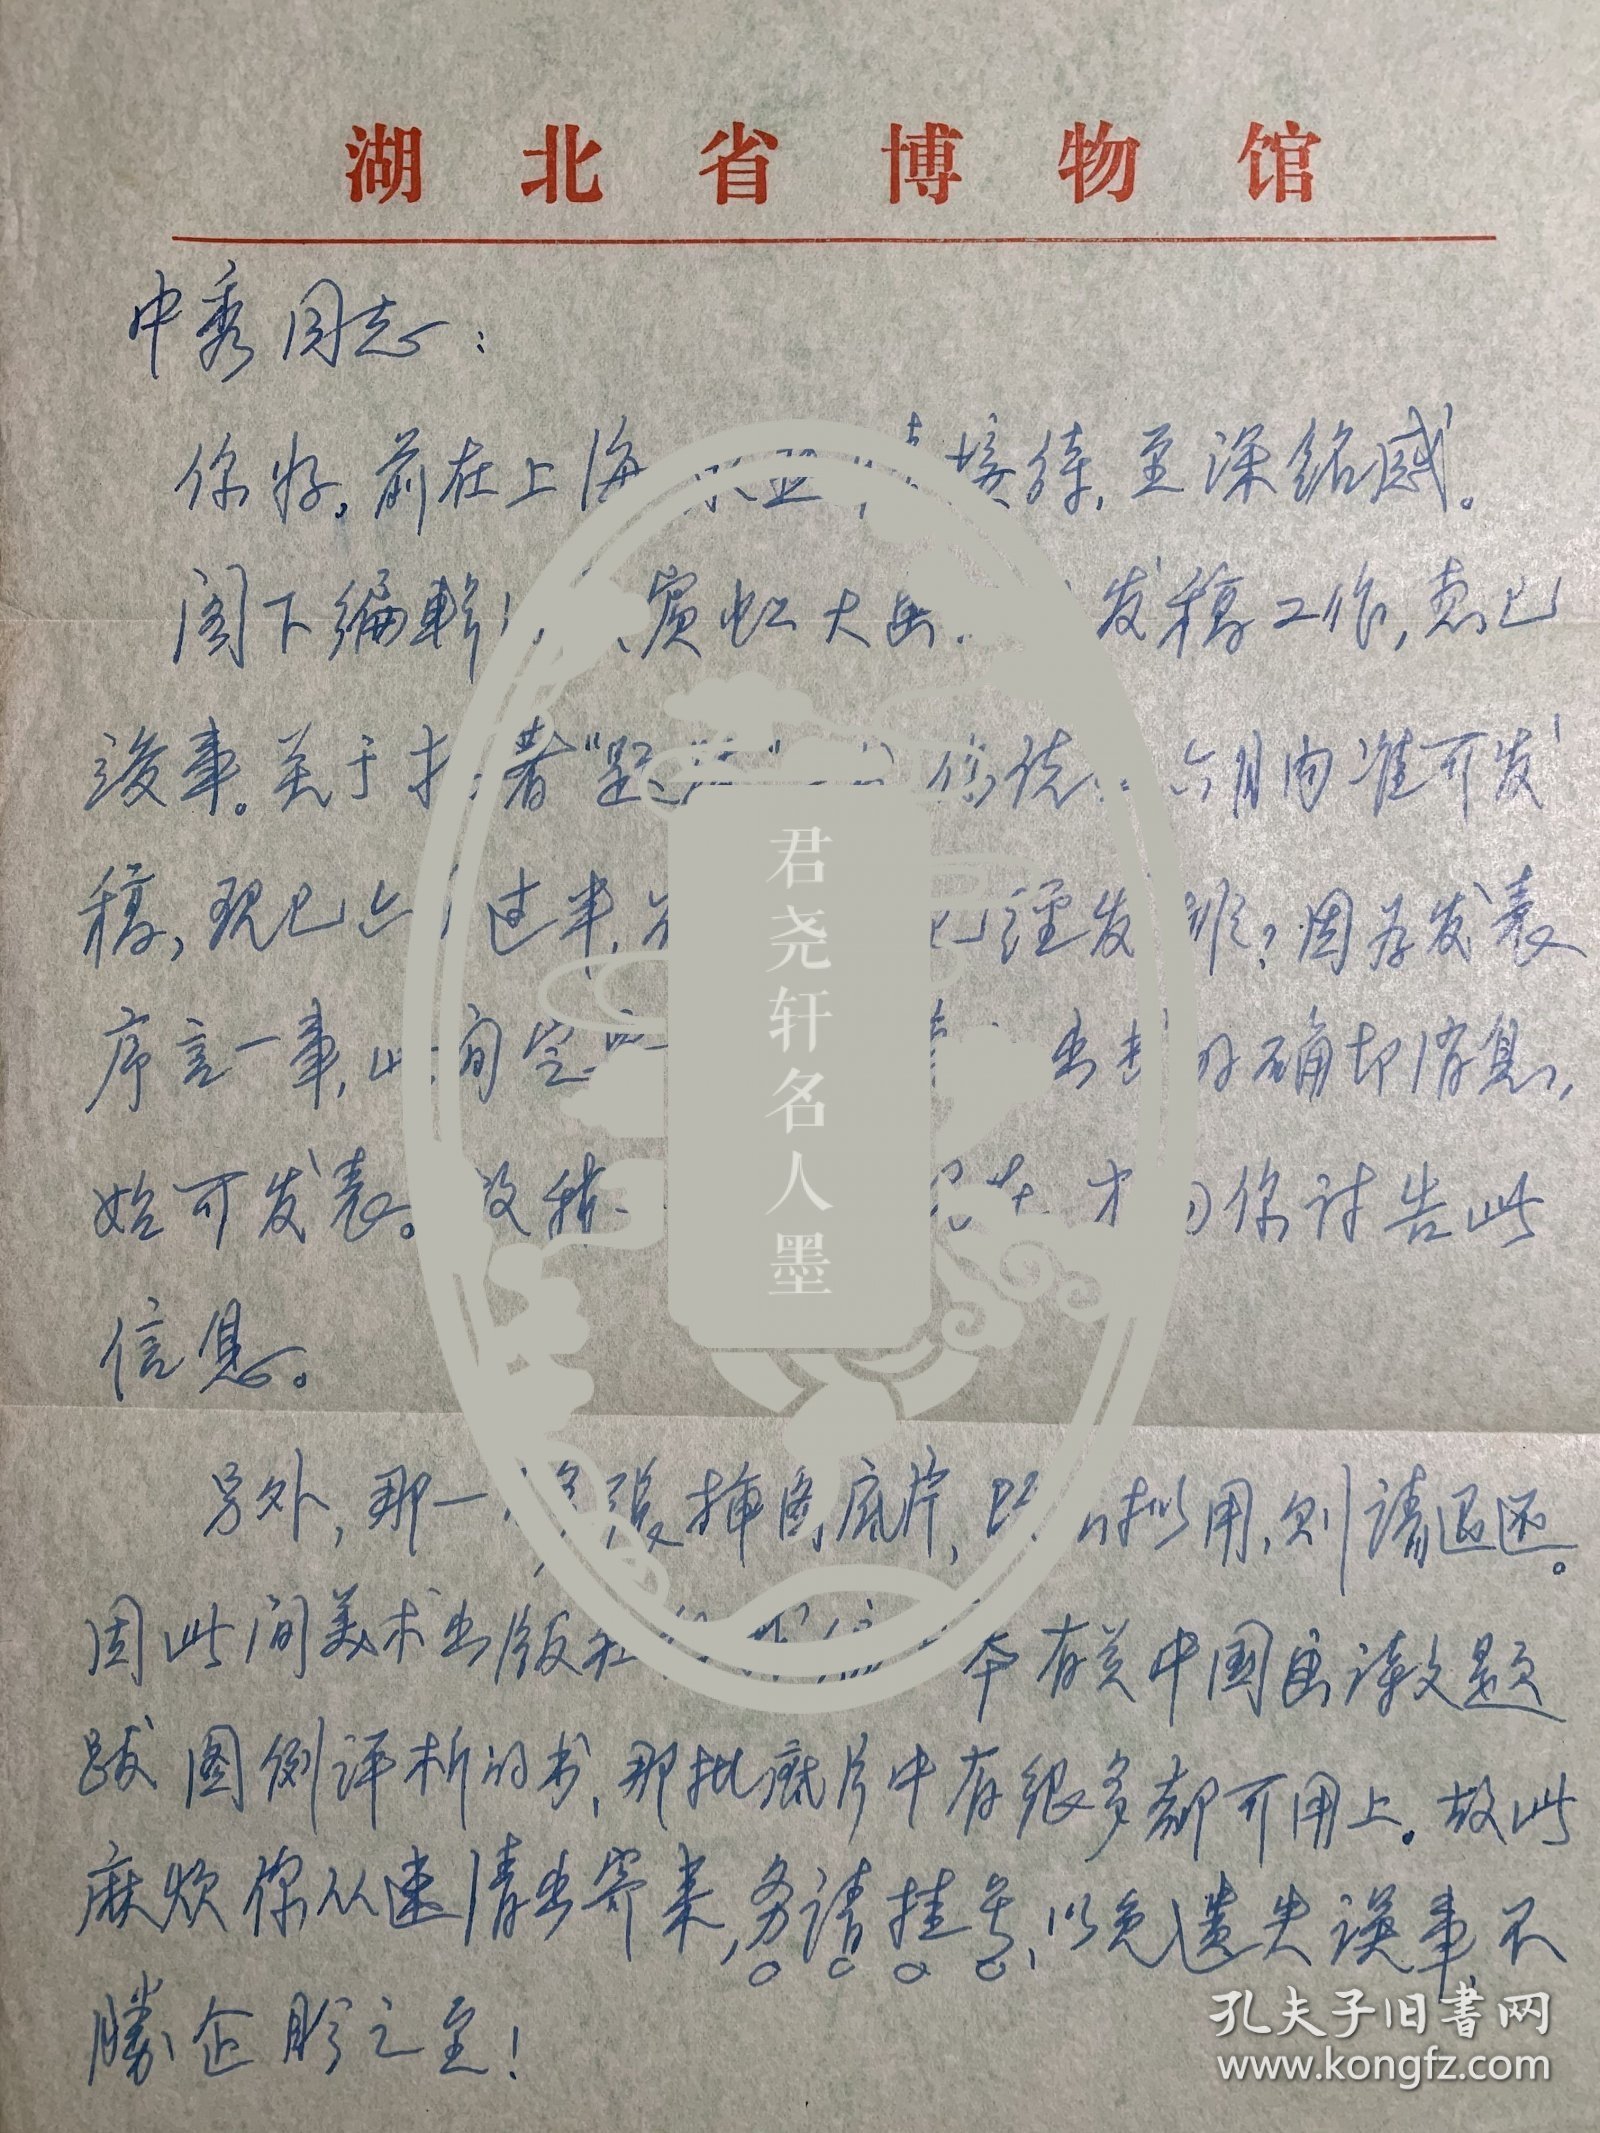 湖北省博物馆
中秀同志：
你好。前在上海 接待，至深铭感。
阁下编辑 宾虹大画 发稿工作，想已
竣事。关于拙著“题跋” 信说 六月内准可发
稿，现已六月过半， 已经发排？因为发表
序言一事，此间 出书的确切消息，
始可发表。 你讨告此
信息。
另外，那一 张插图底片，既不拟用，则请退还。
因此间美术出版社 本有关中国画诗文题
跋图例评析的书，那批底片中有很多都可用上。故此
麻烦你从速清出寄来，务请挂号，以免遗失误事，不
勝企盼之至！
君尧轩名人墨
孔夫子旧书网
www.kongfz.com